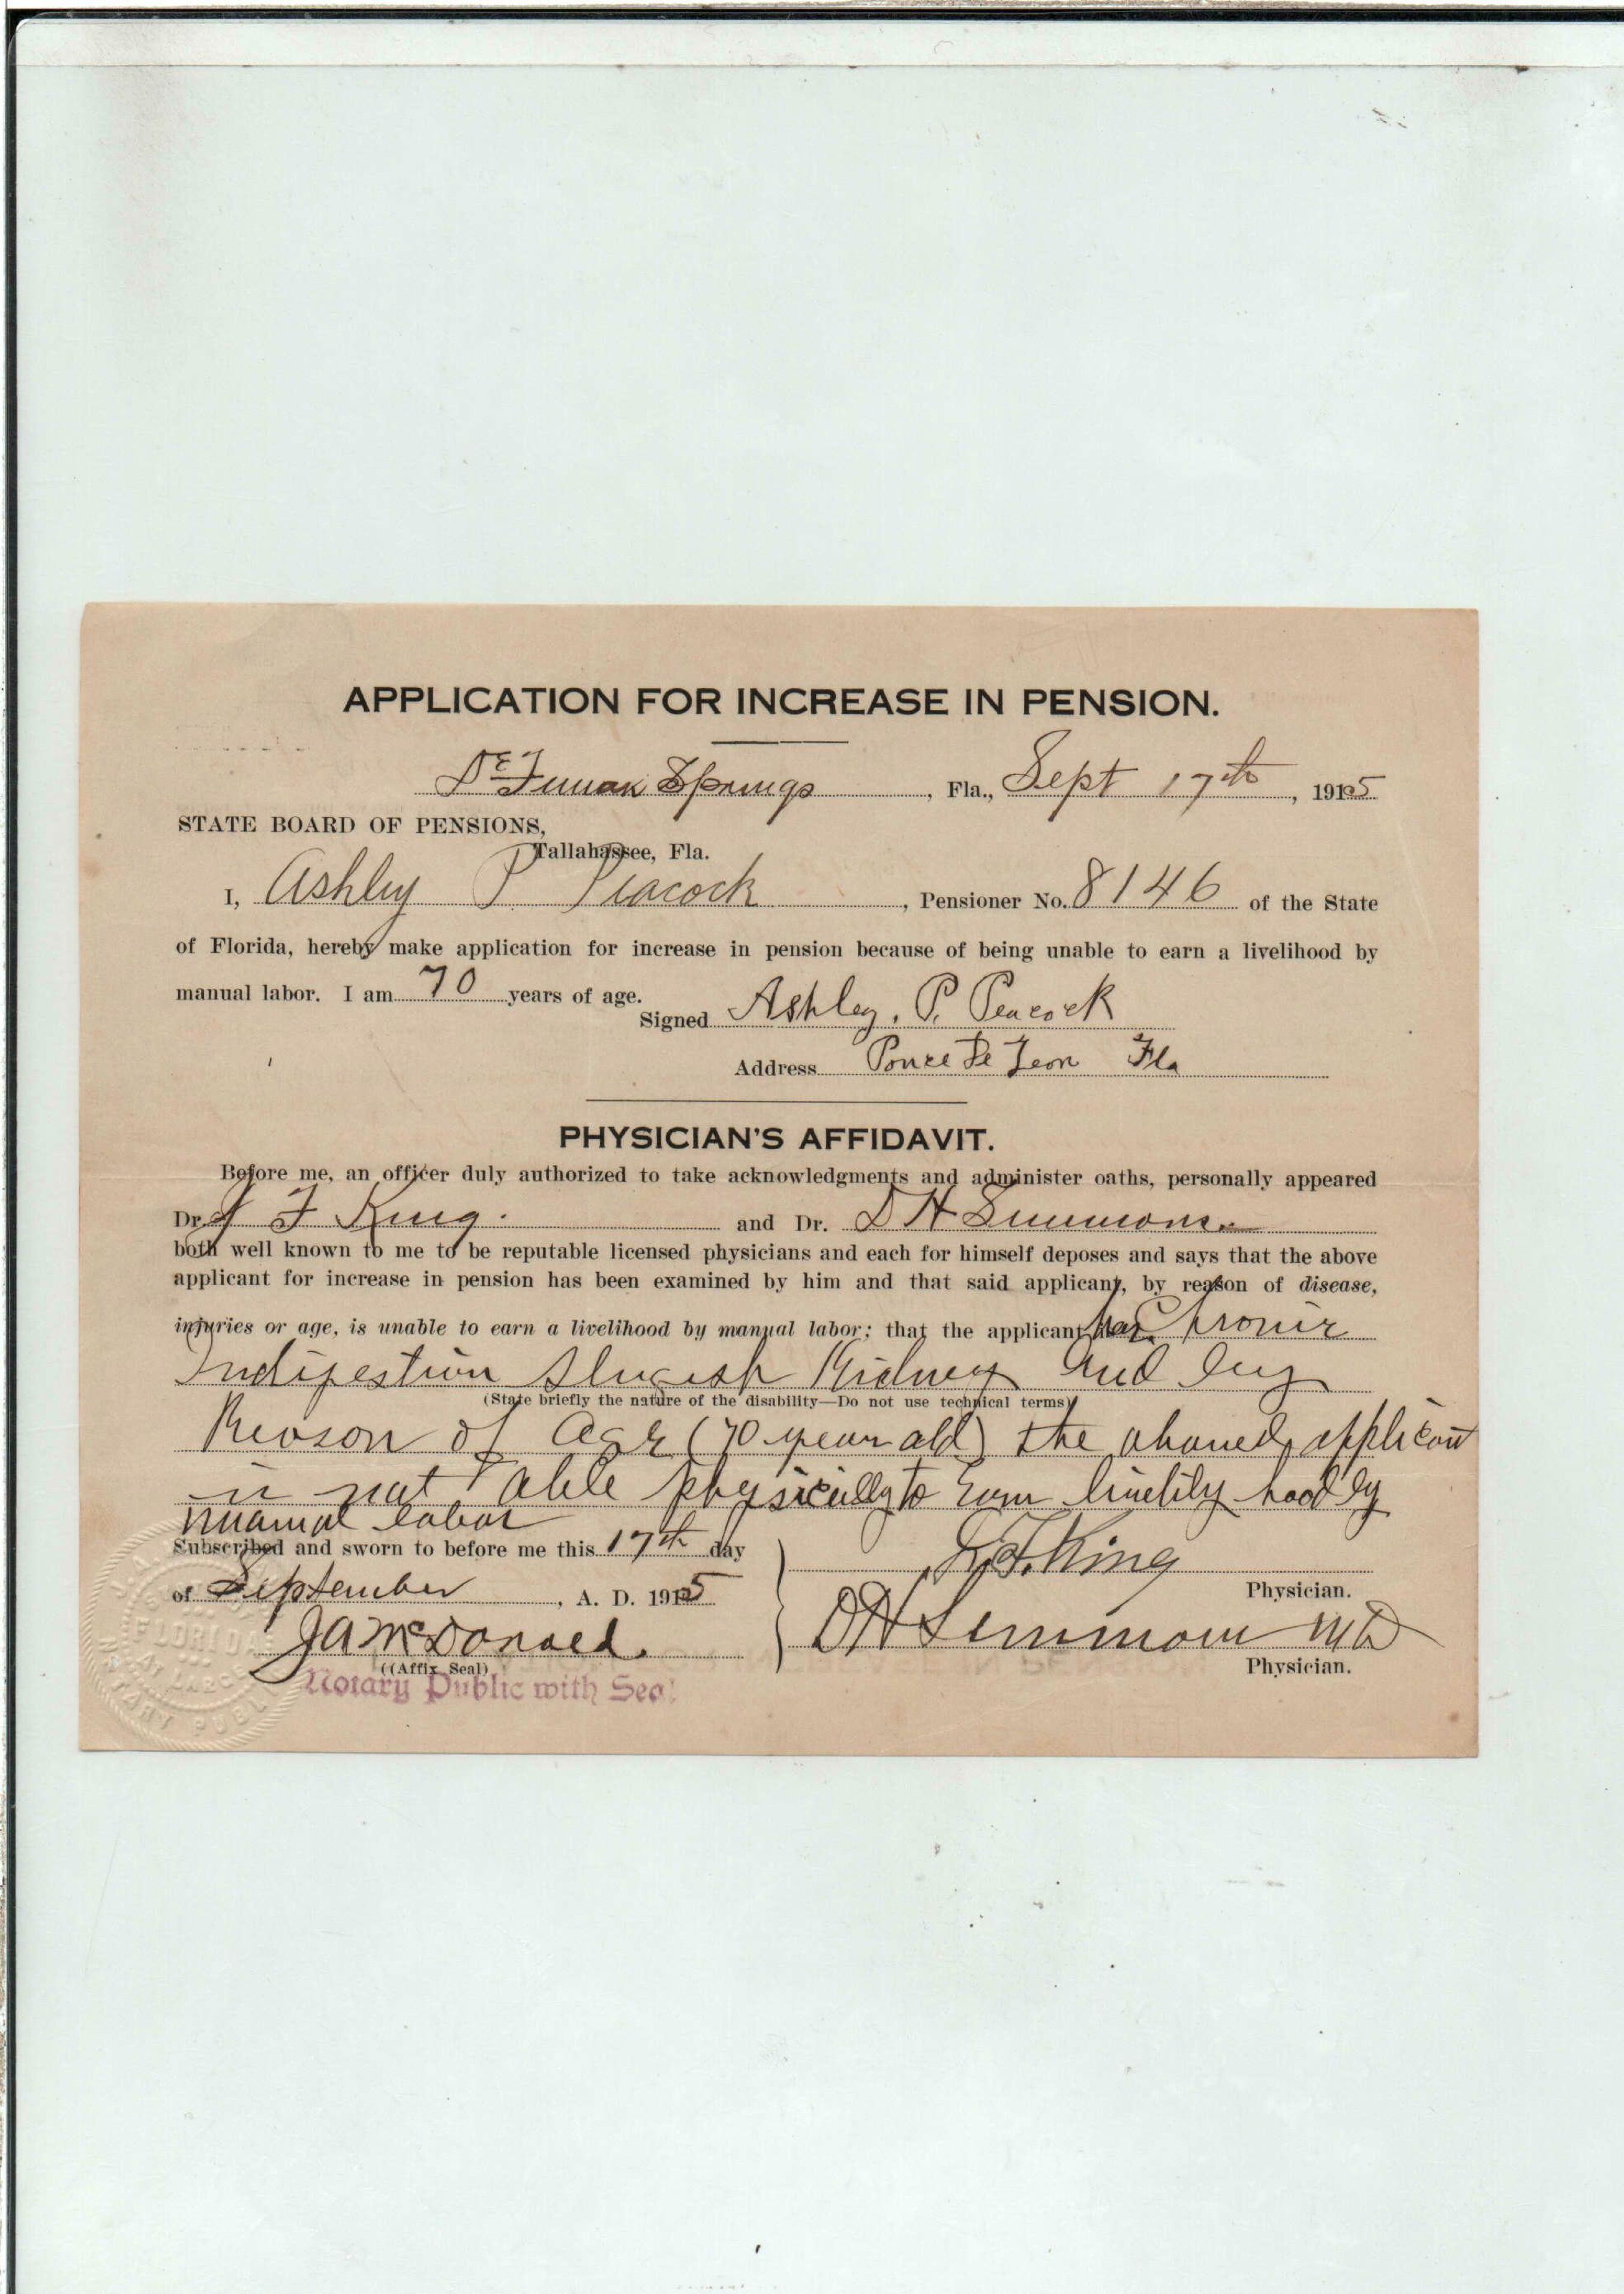 APPLICATION FOR INCREASE IN PENSION.
De Funiak Springs, Fla., Sept 17th, 1915
STATE BOARD OF PENSIONS,
Tallahassee, Fla.
I, Ashley P Peacock, Pensioner No. 8146 of the State
of Florida, hereby make application for increase in pension because of being unable to earn a livelihood by
manual labor. I am 70 years of age.
Signed Ashley. P. Peacock
Address Ponce De Leon Fla
PHYSICIAN'S AFFIDAVIT.
Before me, an officer duly authorized to take acknowledgments and administer oaths, personally appeared
Dr. F King. and Dr. D H Simmons.
both well known to me to be reputable licensed physicians and each for himself deposes and says that the above
applicant for increase in pension has been examined by him and that said applicant, by reason of disease,
injuries or age, is unable to earn a livelihood by manual labor; that the applicant has Chronic
Indigestion Slugish Kidneys and by
(State briefly the nature of the disability—Do not use technical terms)
Reason of age (70 year old) the above applicant
is not able physically to earn livelihood by
manual labor
Subscribed and sworn to before me this 17th day
of September, A. D. 1915
King
Physician.
JA McDonald.
((Affix Seal)
DH Simmons MD
Physician.
Notary Public with Seal
FLORIDA
AT LARGE
NOTARY PUBLIC